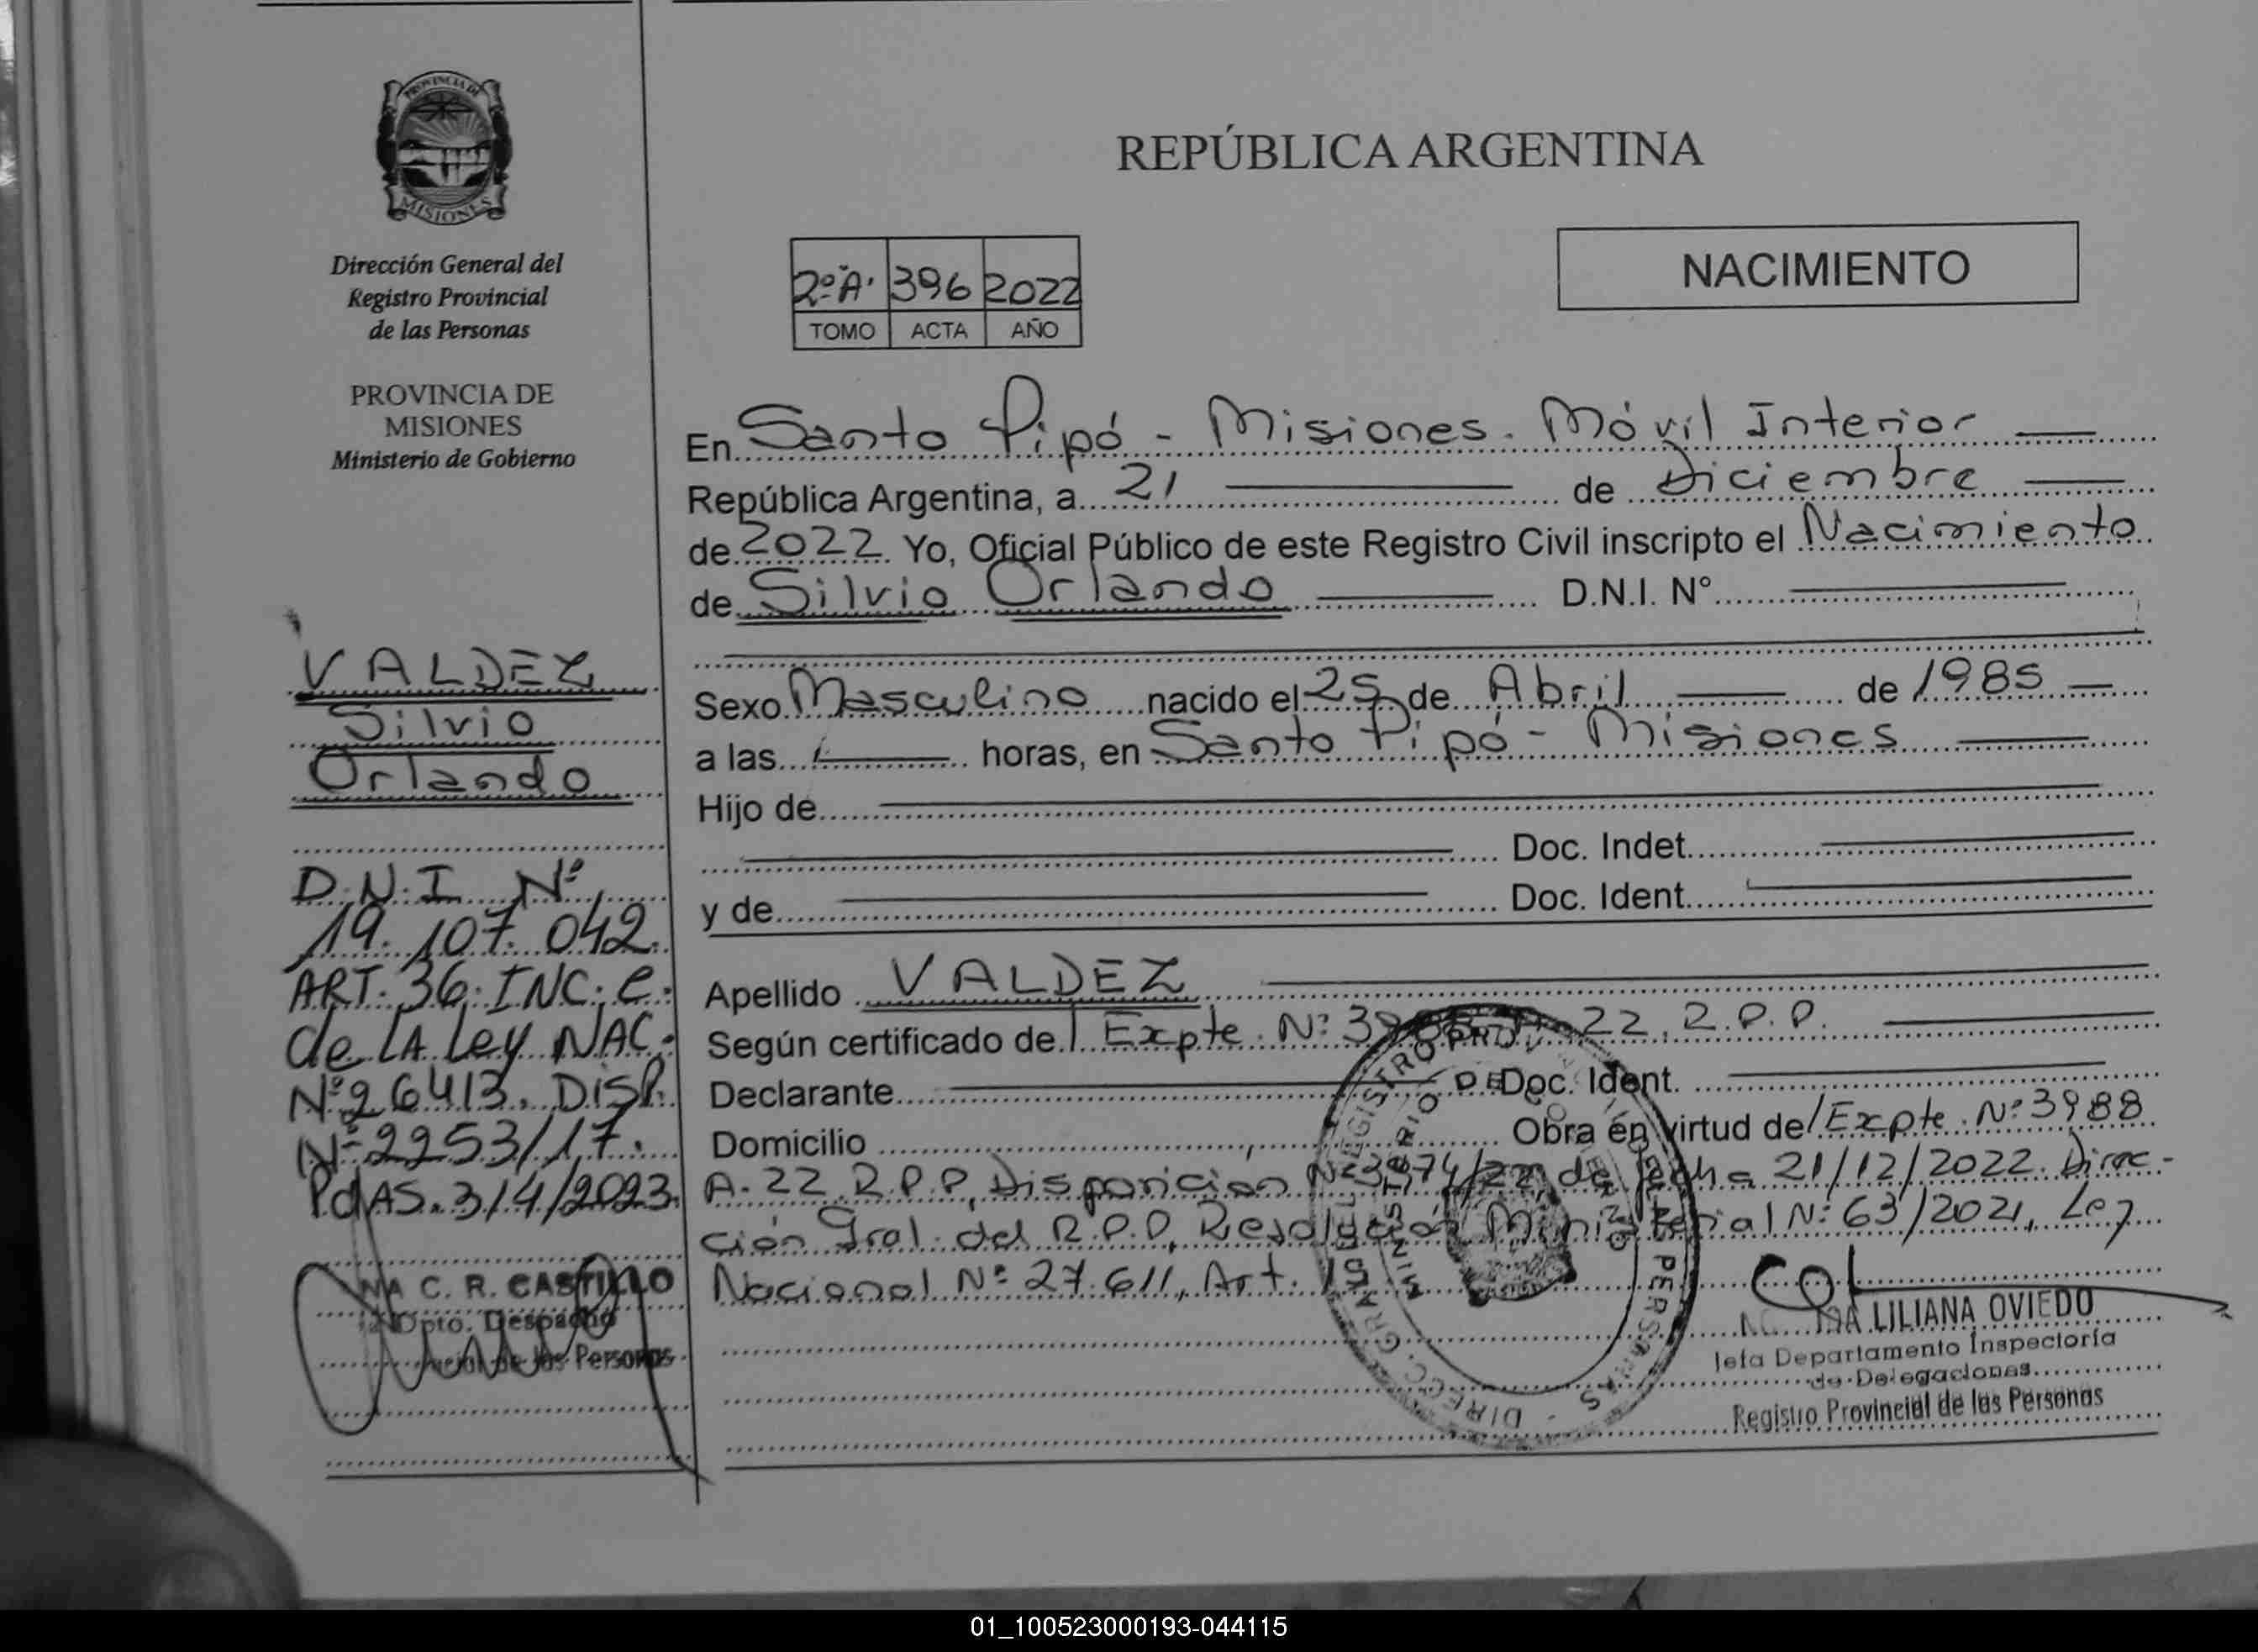 PROVINCIA DE
MISIONES
Dirección General del
Registro Provincial
de las Personas
PROVINCIA DE
MISIONES
Ministerio de Gobierno
VALDEZ
Silvio
Orlando
D.N.I Nº
19.107.042.
ART. 36. INC. C.
de LA Ley NAC.
Nº 26413. DISP.
Nº 2253/17.
PdAS. 3/4/2023.
NA C. R. CASTILLO
Dpto. Despacho
de las Personas
REPÚBLICA ARGENTINA
2º A. 396 2022
TOMO ACTA AÑO
NACIMIENTO
En Santo Pipó - Misiones. Móvil Interior
República Argentina, a 21 de Diciembre
de 2022 Yo, Oficial Público de este Registro Civil inscripto el Nacimiento
de Silvio Orlando D.N.I. N°
Sexo Masculino nacido el 25 de Abril de 1985
a las horas, en Santo Pipó - Misiones
Hijo de
Doc. Indet.
y de Doc. Ident.
Apellido VALDEZ
Según certificado de Expte. Nº 22. R.P.P.
Declarante Doc. Ident.
Domicilio Obra en virtud de Expte. Nº 3988
A-22 R.P.P, Disposición Nº 3974/22, de fecha 21/12/2022. Direc-
ción Gral. del R.P.P, Resolución Ministerial Nº 63/2021, Ley
Nacional Nº 27.611, Art.
LILIANA OVIEDO
Jefa Departamento Inspectoría
de Delegaciones
Registro Provincial de las Personas
01_100523000193-044115